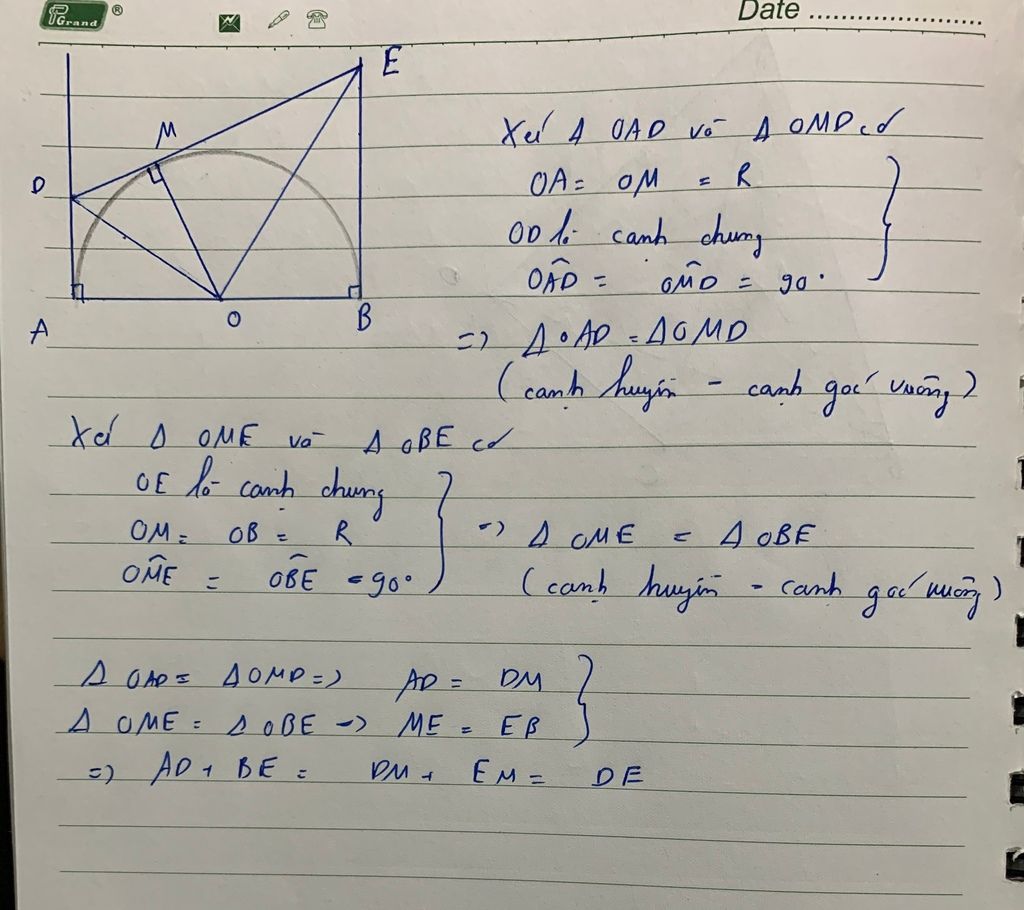 Grand ®
Date
E
M
D
A
O
B
Xét Δ OAD và Δ OMD có
OA = OM = R
OD là cạnh chung
OÂD = OM̂D = 90°
=> Δ OAD = Δ OMD
(cạnh huyền - cạnh góc vuông)
Xét Δ OME và Δ OBE có
OE là cạnh chung
OM = OB = R
OM̂E = OB̂E = 90°
=> Δ OME = Δ OBE
(cạnh huyền - cạnh góc vuông)
Δ OAD = Δ OMD => AD = DM
Δ OME = Δ OBE -> ME = EB
=> AD + BE = DM + EM = DE